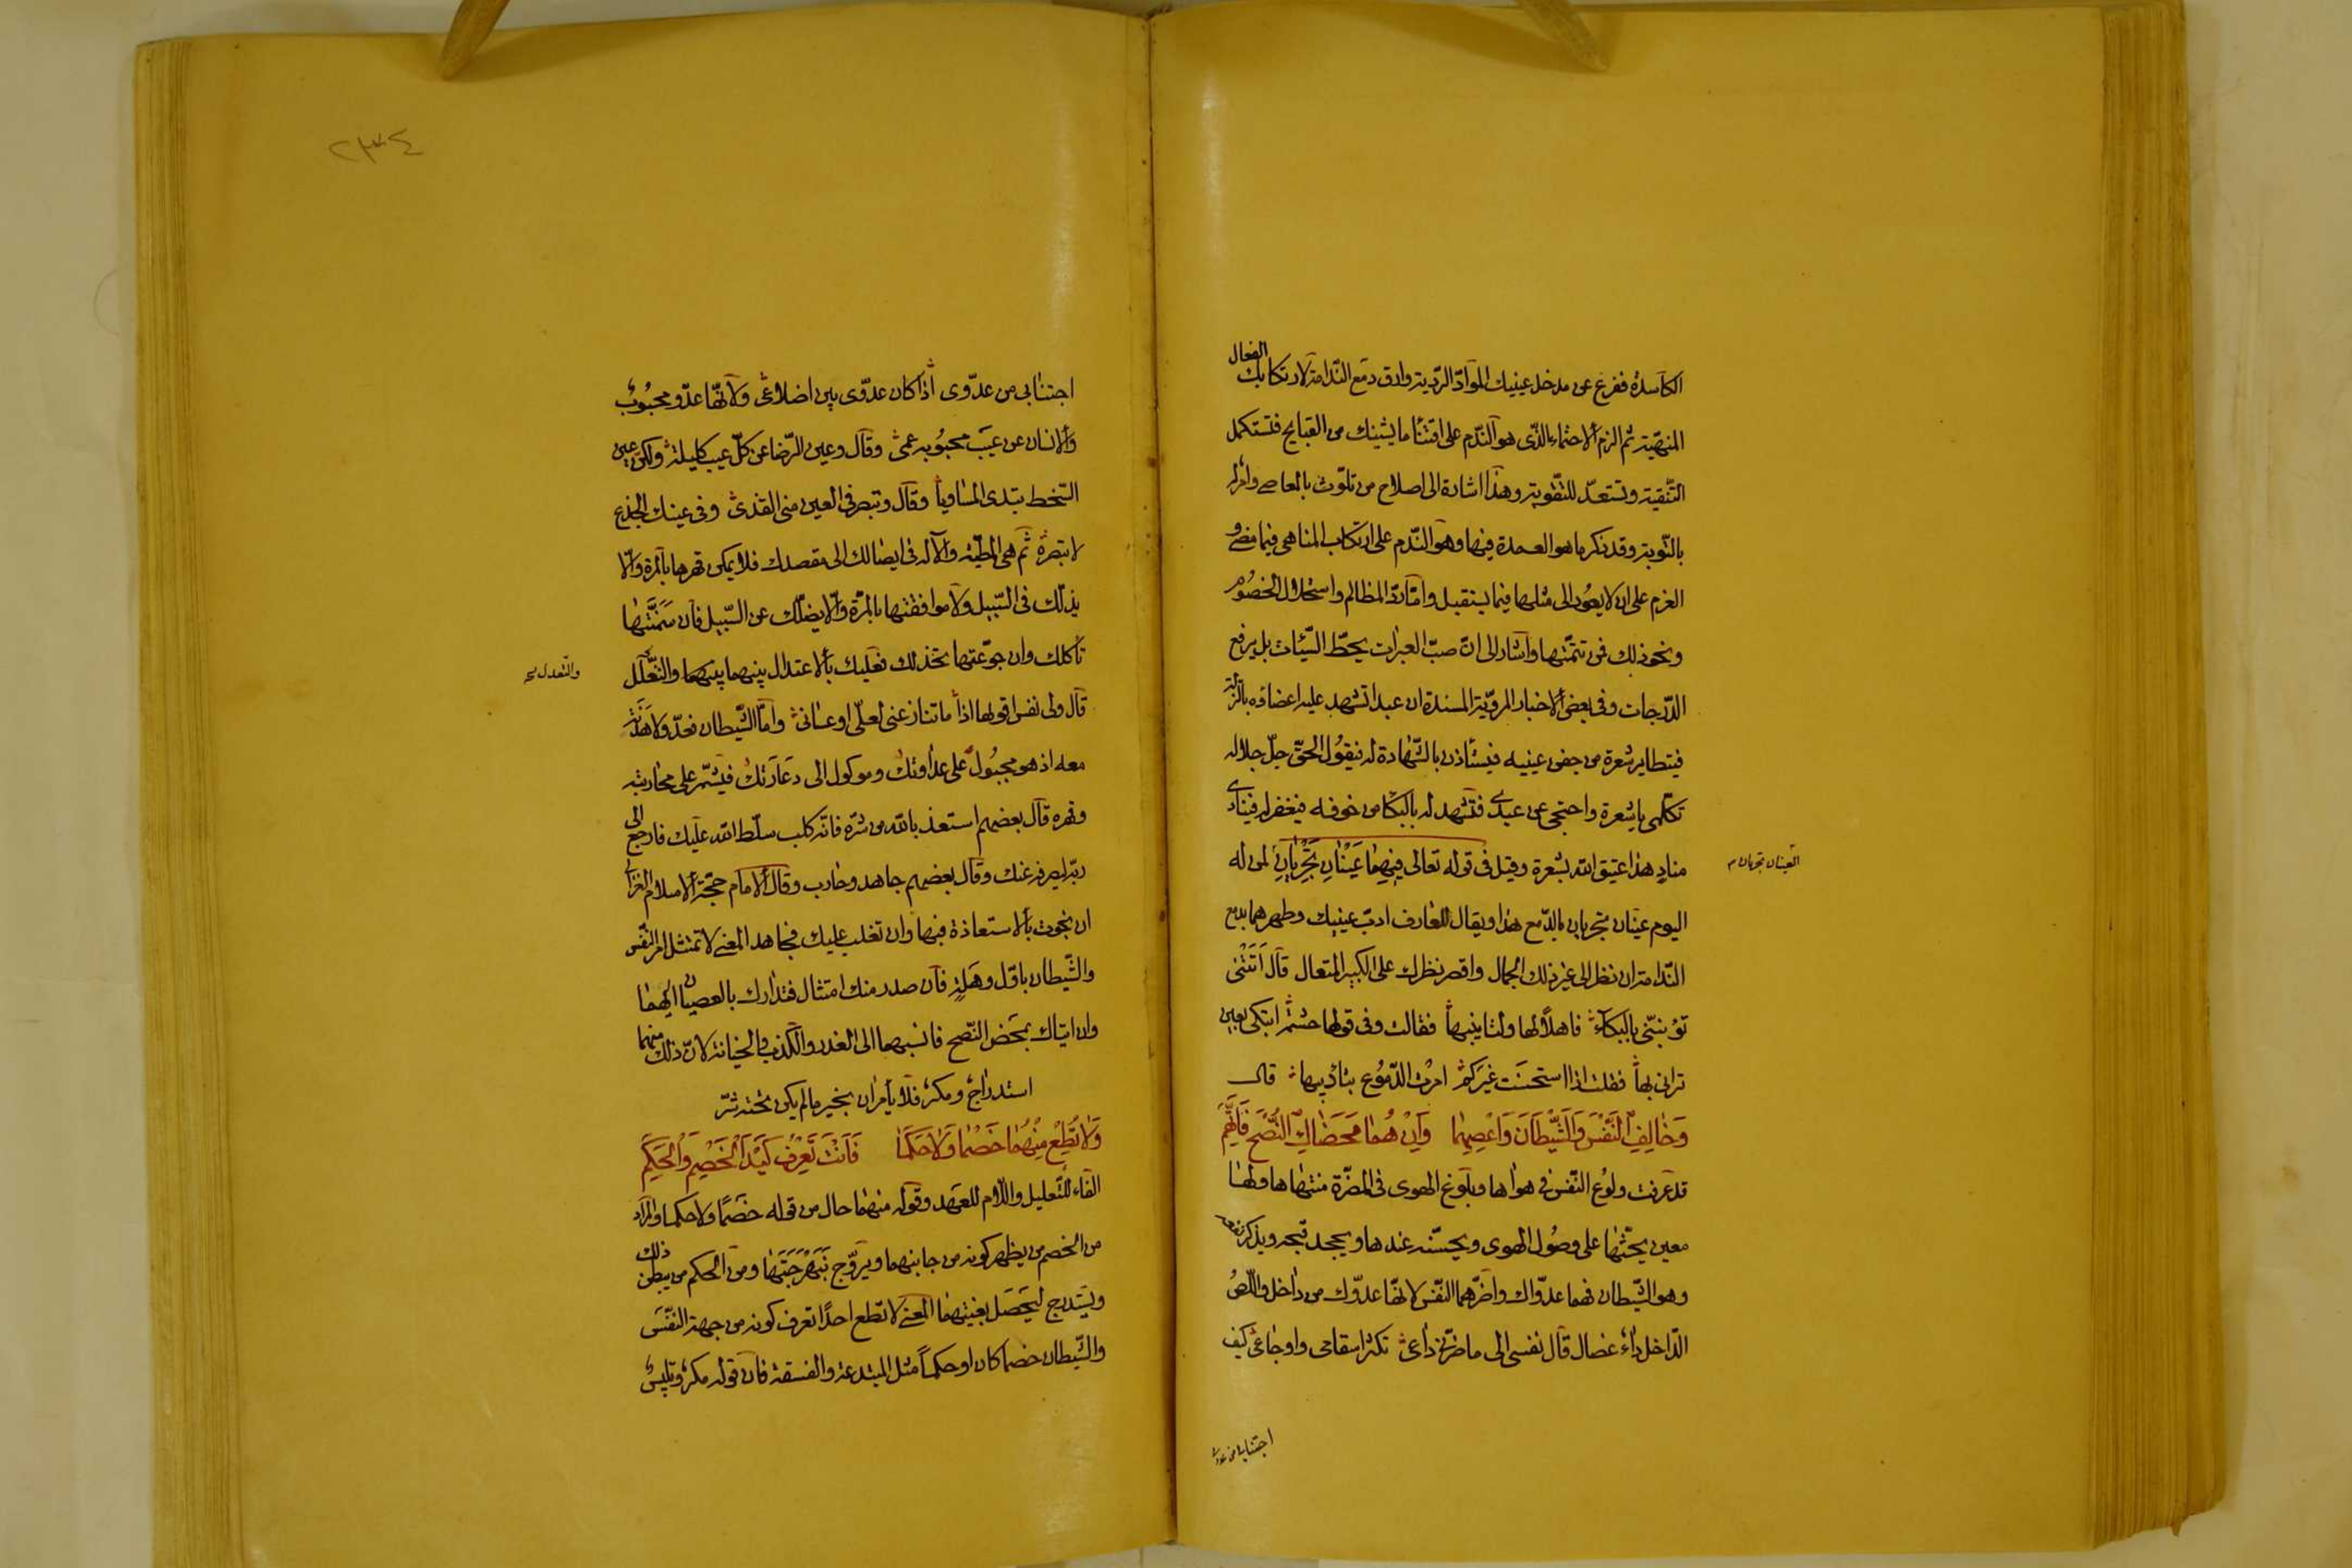 الفعال
الكاسدة ففرغ عن مدخل عينيك المواد الردية وارق دمع الندامة لارتكابك
المنهية ثم الزم الاحتماء الذى هو الندم على اقتنا ما يشينك من القبايح فتستكمل
التنقية وتستعد للتقوية وهذا اشارة الى اصلاح من تلوث بالمعاصى وامره
بالتوبة وقد ذكر ما هو العمدة فيها وهو الندم على ارتكاب المناهى فيما مضى و
العزم على ان لا يعود الى مثلها فيما يستقبل واما رد المظالم واستحلال الخصوم
ونحو ذلك فمن تتمتها واشار الى ان صب العبرات يحط السيئات بل يرفع
الدرجات وفى بعض الاخبار المروية المسندة ان عبدا تشهد عليه اعضاؤه بالزلة
فيتطاير شعرة من جفن عينيه فيستاذن بالشهادة له فيقول الحق جل جلاله
تكلمى يا شعرة واحتجى عن عبدى فتشهد له بالبكا من خوفه فيغفر له فينادى
مناد هذا عتيق الله بشعرة وقيل فى قوله تعالى فِيهِمَا عَيْنَانِ تَجْرِيَانِ لمن له
العينان تجريان
اليوم عينان تجريان بالدمع هذا ويقال للعارف ادب عينيك وطهرهما بدمع
الندامة ان نظر الى غير ذلك الجمال واقصر نظرك على الكبير المتعال قال اتتنى
تؤنبنى بالبكاء فاهلا لها وبتانيبها فقالت وفى قولها حشمة اتبكى بعين
ترانى بها فقلت اذا استحسنت غيركم امرت الدموع بتاديبها قال
وَخَالِفِ النَّفْسَ وَالشَّيْطَانَ وَاعْصِهِمَا وَاِنْ هُمَا مَحَضَاكَ النُّصْحَ فَاتَّهِمِ
قد عرفت ولوع النفس فى هواها وبلوغ الهوى فى المضرة منتهاها ولها
معين يحثها على وصول الهوى ويحسنه عندها ويجحد قبحه ويذكر
وهو الشيطان فهما عدواك واضرهما النفس لانها عدوك من داخل واللص
الداخل داء عضال قال نفسى الى ما ضرنى داعى تكثر اسقامى واوجاعى كيف
اجتنابى من عدوى
٢٣٤
اجتنابى من عدوى اذا كان عدوى بين اضلاعى ولانها عدو محبوب
والانسان عن عيب محبوبه عمى وقال وعين الرضا عن كل عيب كليلة ولكن عين
السخط تبدى المساويا وقال وتبصر فى العين منى القذى وفى عينك الجذع
لا تبصره ثم هى المطية والآلة فى ايصالك الى مقصدك فلا يمكن قهرها بالمرة والا
يذلك فى السبيل ولا موافقتها بالمرة والا يضلك عن السبيل فان سَمَّنْتَها
تأكلك وان جوعتها تخذلك فعليك بالاعتدال بينهما بينهما والتعلل
والتعدل
قال ولى نفس اقول لها اذا ما تنازعنى لعلى او عسانى واما الشيطان فعدو لا هدنة
معه اذ هو مجبول على عداوتك وموكول الى دعارتك فيشمر على محاربته
وقهره قال بعضهم استعذ بالله من شره فانه كلب سلط الله عليك فارجع الى
ربه ليصرفه عنك وقال بعضهم جاهد وحارب وقال الامام حجة الاسلام الغزالى
ان نجوت بالاستعاذة فبها وان تغلب عليك فجاهد المعنى لا تمتثل امر النفس
والشيطان باول وهلة فان صدر منك امتثال فتدارك بالعصيان اليهما
وان اتياك بمحض النصح فانسبهما الى الغدر والكذب والخيانة لان ذلك منهما
استدراج ومكر فلا يأمران بخير ما لم يكن تحته شر
وَلَا تُطِعْ مِنْهُمَا خَصْمًا وَلَا حَكَمًا فَاَنْتَ تَعْرِفُ كَيْدَ الْخَصْمِ وَالْحَكَمِ
الفاء للتعليل واللام للعهد وقوله منهما حال من قوله خصما ولا حكما والمراد
من الخصم من يظهر كونه من جانبهما ويروج نبهرجتها ومن الحكم من يبطن ذلك
ويتدرج ليحصل بغيتهما المعنى لا تطع احدا تعرف كونه من جهة النفس
والشيطان خصما كان او حكما مثل المبتدعة والفسقة فان قوله مكر وتلبيس